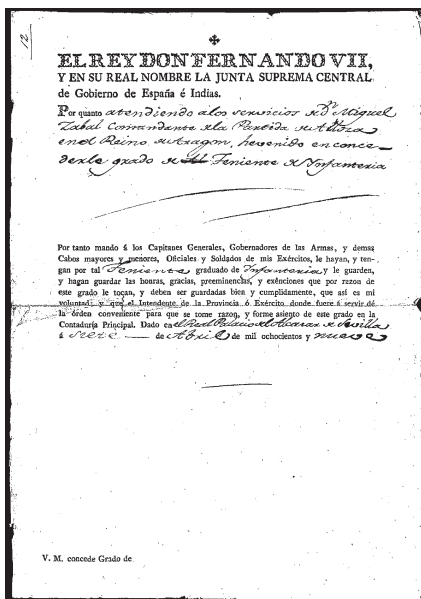 12
EL REY DON FERNANDO VII,
Y EN SU REAL NOMBRE LA JUNTA SUPREMA CENTRAL
de Gobierno de España é Indias.
Por quanto atendiendo a los servicios de Dn Miguel
Zabal Comandante de la Partida de
en el Reino de Aragon, he venido en conce-
derle grado de Teniente de Ynfanteria
Por tanto mando á los Capitanes Generales, Gobernadores de las Armas, y demas
Cabos mayores y menores, Oficiales y Soldados de mis Exércitos, le hayan, y ten-
gan por tal Teniente graduado de Infanteria y le guarden,
y hagan guardar las honras, gracias, preeminencias, y exênciones que por razon de
este grado le tocan, y deben ser guardadas bien y cumplidamente, que así es mi
voluntad: y que el Intendente de la Provincia ó Exército donde fuere á servir dé
la órden conveniente para que se tome razon, y forme asiento de este grado en la
Contaduría Principal. Dado en el Real Palacio del Alcazar de Sevilla
á siete de Abril de mil ochocientos y nueve
V. M. concede Grado de